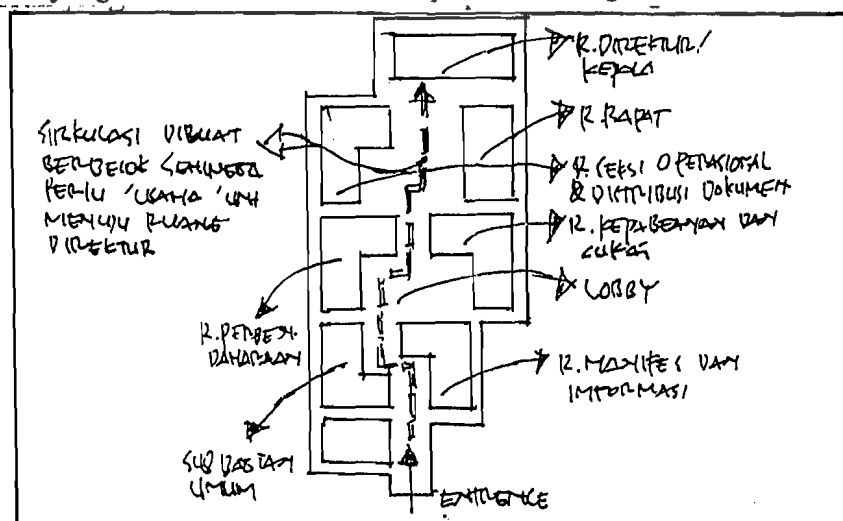 R. DIREKTUR/
KEPALA
SIRKULASI DIBUAT
BERBELOK SEHINGGA
PERLU 'USAHA' UNT
MENUJU RUANG
DIREKTUR
R. RAPAT
R. SEKSI OPERASIONAL
& DISTRIBUSI DOKUMEN
R. KEPABEANAN DAN
CUKAI
LOBBY
R. PERBEN-
DAHARAAN
R. MANIFES DAN
INFORMASI
SUB BAGIAN
UMUM
ENTRENCE